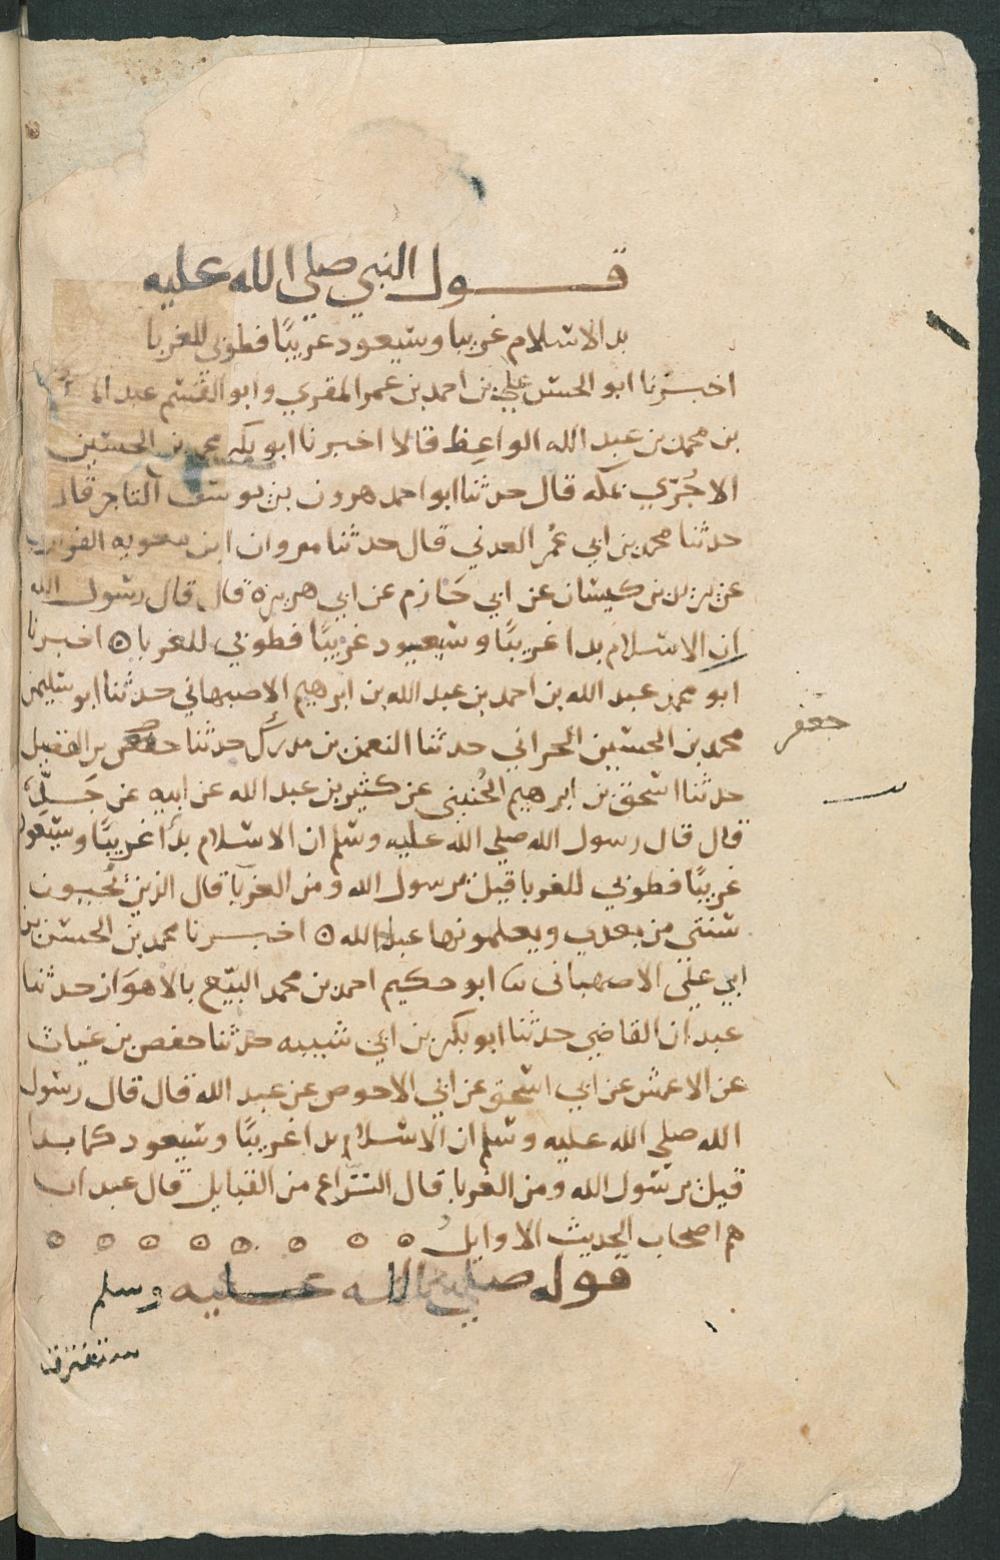 قول النبي صلي الله عليه
بدا الاسلام غريبا وسيعود غريبًا فطوبي للغربا
اخبرنا ابو الحسن علي بن احمد بن عمر المقري وابو القسم عبد الم
بن محمد بن عبد الله الواعظ قالا اخبرنا ابو بكر محمد بن الحسين
الاجُرّي بمكه قال حدثنا ابو احمد هرون بن يوسف التاجر قال
حدثنا محمد بن ابي عُمر العدني قال حدثنا مروان ابن معويه الفزاري
عن يزيد بن كيسان عن ابي حَازم عن ابي هريرة قال قال رسول الله
ان الاسلام بدا غريبًا وسيعود غريبًا فطوبي للغربا ⊙ اخبرنا
ابو محمد عبد الله بن احمد بن عبد الله بن ابرهيم الاصبهاني حدثنا ابو سليمن
محمد بن الحسين الحراني حدثنا النعمن بن مدرك حدثنا حفص بن الفضيل
جعفر
حدثنا اسحق بن ابرهيم الحُنيني عن كثير بن عبد الله عن ابيه عن جَدِّه
قال قال رسول الله صلي الله عليه وسلم ان الاسلام بدأ غريبًا وسيَعود
غريبًا فطوبي للغربا قيل يرسول الله ومن الغربآ قال الذين يُحيون
سنتي من بعدي ويعلمونها عباد الله ⊙ اخبرنا محمد بن الحسن بن
ابي علي الاصبهاني ثنا ابو حكيم احمد بن محمد البيّع بالاهوَاز حدثنا
عبدان القاضي حدثنا ابو بكر بن ابي شيبه حدثنا حفص بن غياث
عن الاعمش عن ابي اسحق عن ابي الاحوص عن عبد الله قال قال رسول
الله صلي الله عليه وسلم ان الاسلام بدا غريبًا وسيعود كما بدا
قيل يرسول الله ومن الغربا قال النُزّاع من القبايل قال عبدان
هم اصحاب الحديث الاوايل ⊙ ⊙ ⊙ ⊙ ⊙ ⊙ ⊙ ⊙
قوله صلي الله عليه وسلم
ستفترق